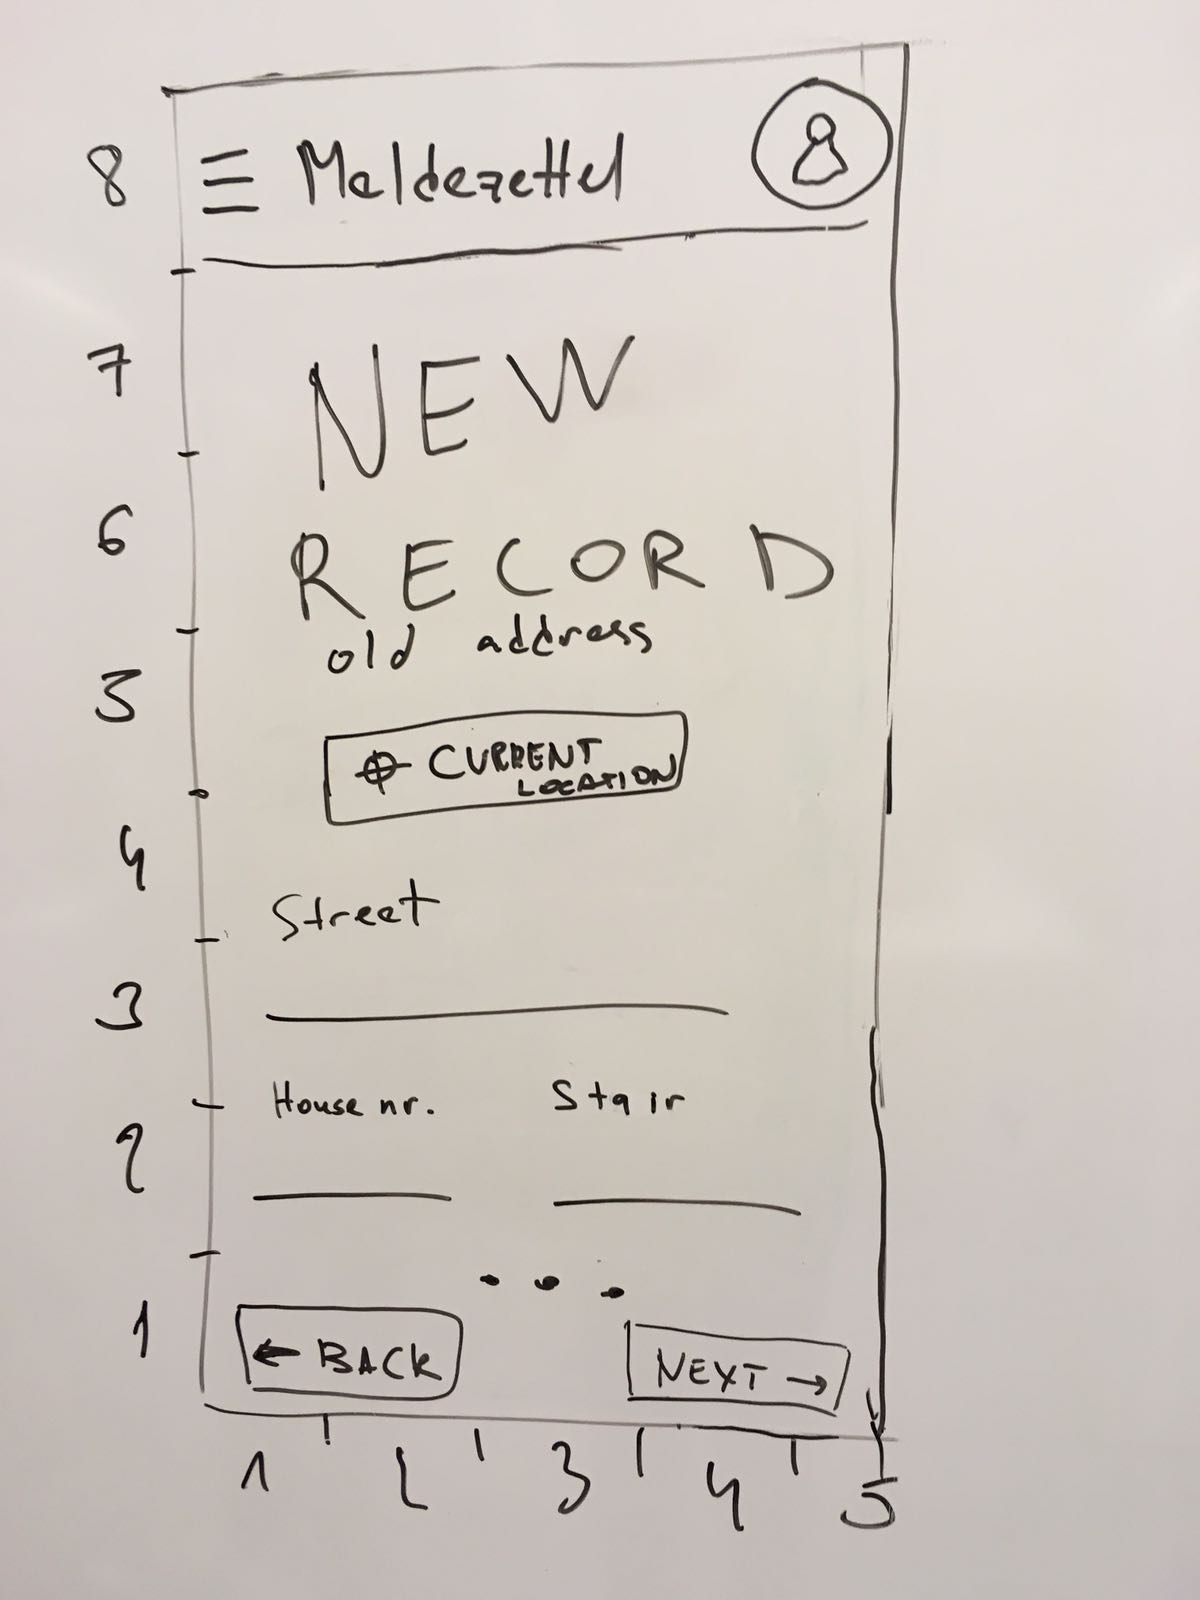 8 Meldezettel
7 NEW
6 RECORD
old address
5
CURRENT
LOCATION
4
Street
3
House nr. Stair
2
1
← BACK NEXT →
1 2 3 4 5